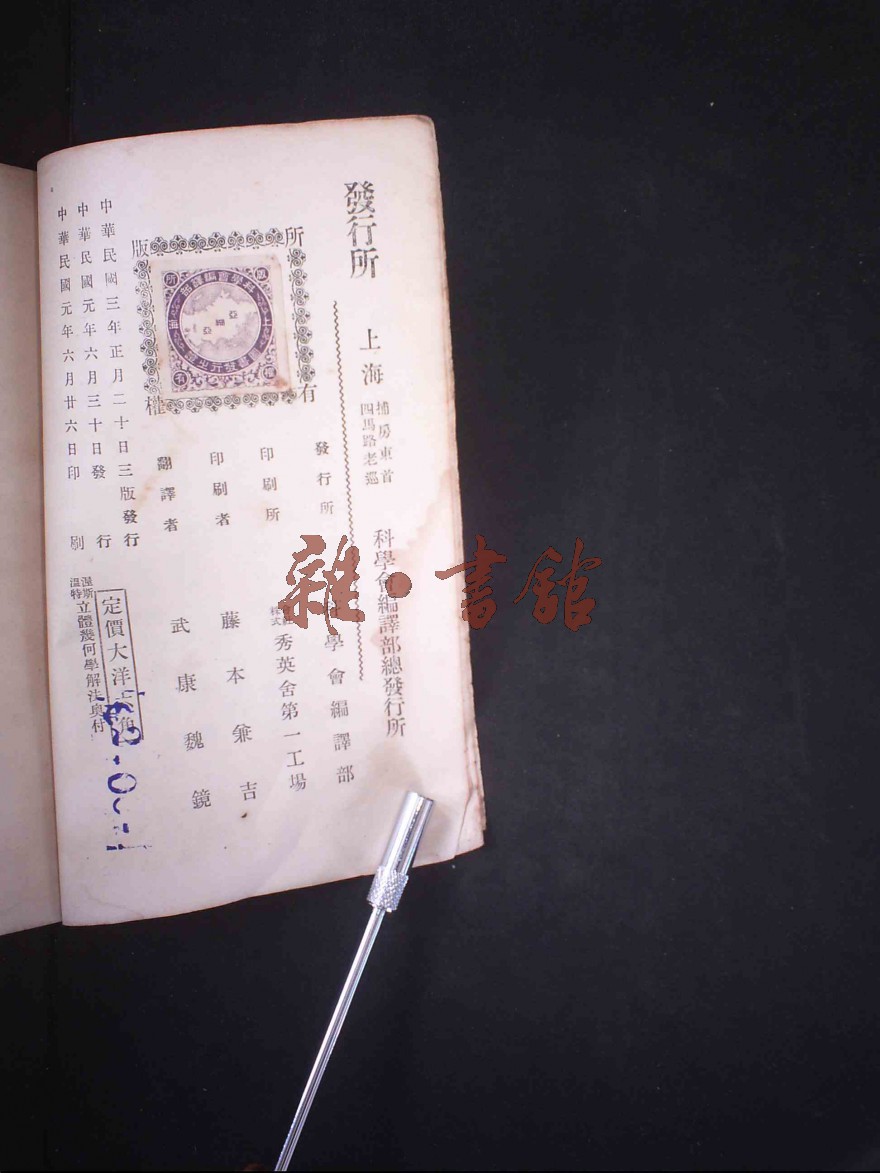 發行所
上海
四馬路老巡
捕房東首
科學會編譯部總發行所
發行所
學會編譯部
印刷所
株式會社
秀英舍第一工場
印刷者
藤本兼吉
翻譯者
武康魏鏡
版權所有
中華民國三年正月二十日三版發行
中華民國元年六月三十日發行
中華民國元年六月廿六日印刷
定價大洋
角
溫特
渥斯
立體幾何學解法奥付
雜·書館